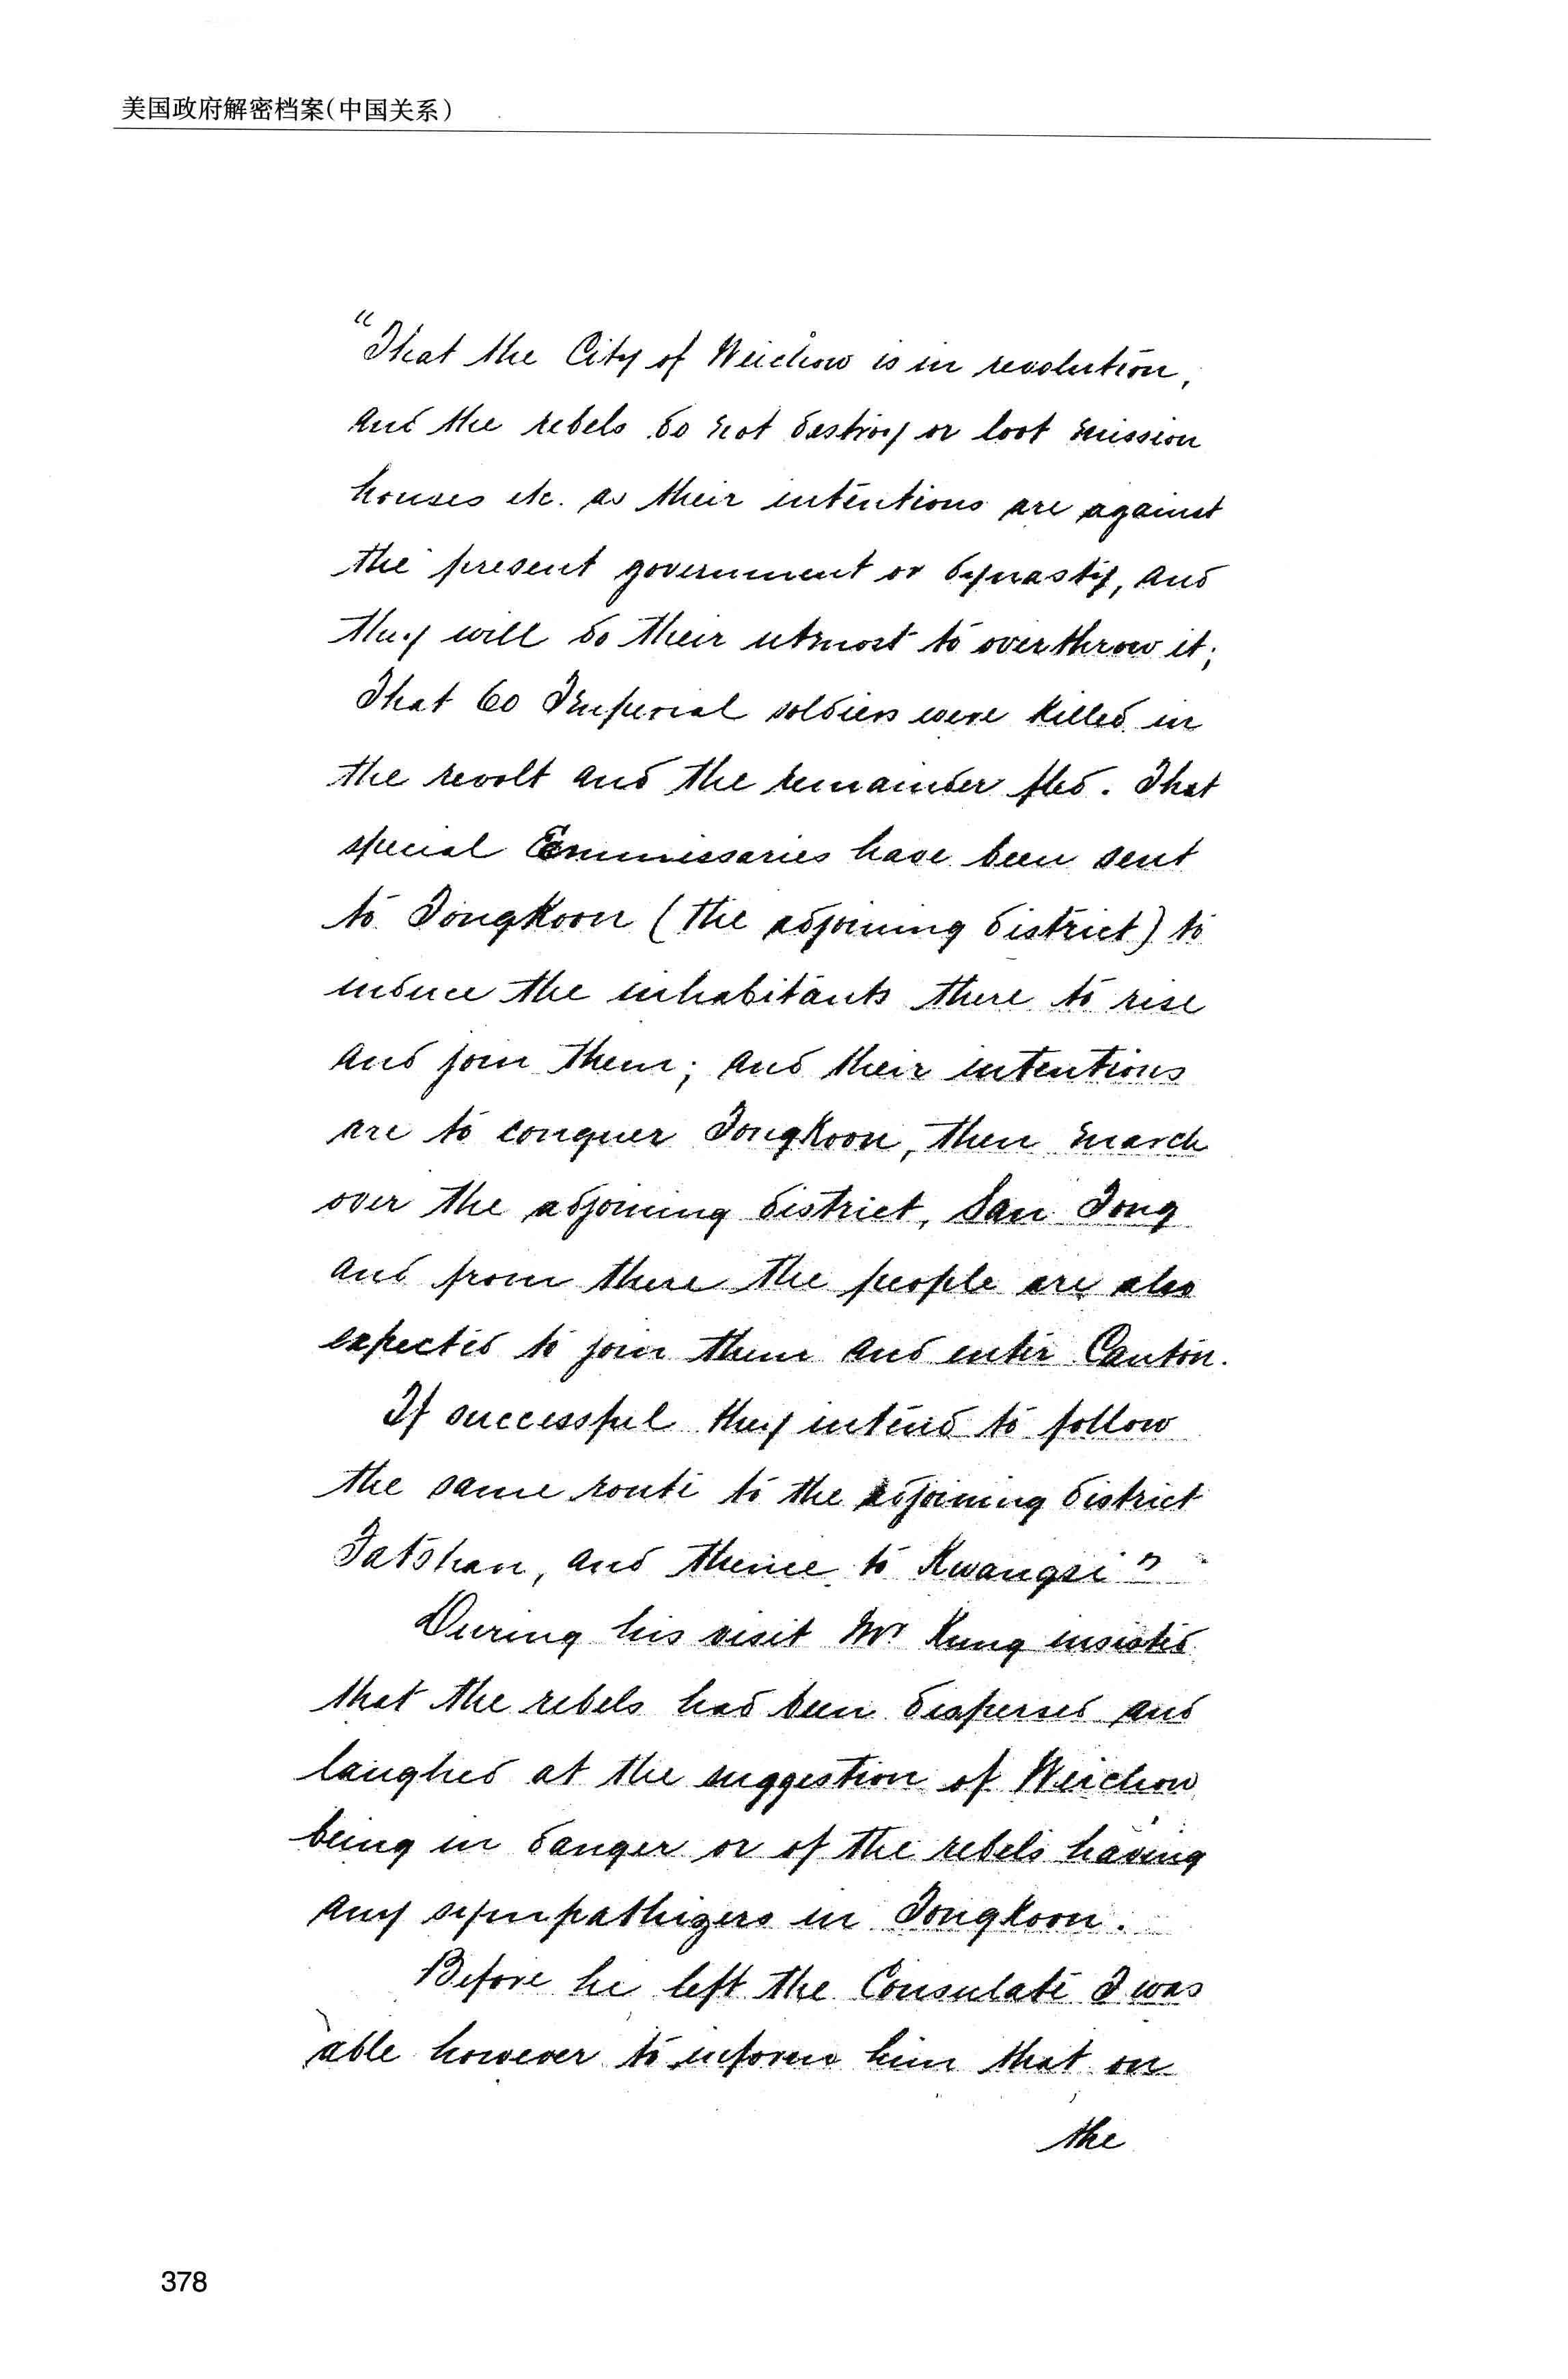 美国政府解密档案(中国关系)
"That the City of Weichow is in revolution,
and the rebels do not destroy or loot mission
houses etc. as their intentions are against
the present government or dynasty, and
they will do their utmost to overthrow it;
That 60 Imperial soldiers were killed in
the revolt and the remainder fled. That
special Emmissaries have been sent
to TongKoon (the adjoining district) to
induce the inhabitants there to rise
and join them; and their intentions
are to conquer TongKoon, then march
over the adjoining district, San Tong
and from there the people are also
expected to join them and enter Canton.
If successful they intend to follow
the same route to the adjoining district
Fatshan, and thence to Kwangsi"
During his visit Mr Kung insisted
that the rebels had been dispersed and
laughed at the suggestion of Weichow
being in danger or of the rebels having
any sympathizers in Tongkoon.
Before he left the Consulate I was
able however to inform him that on
the
378